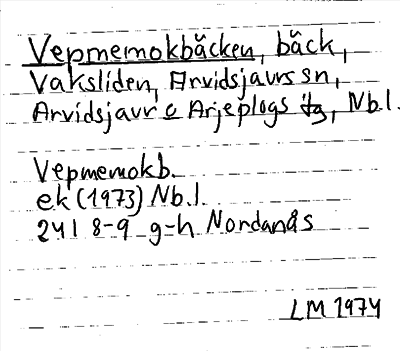 Vepmemokbäcken, bäck,
Vaksliden, Arvidsjaurs sn,
Arvidsjaur o Arjeplogs tg, Nb.l.
Vepmemokb.
ek (1973) Nb.l.
24I 8-9 g-h Nordanås
LM 1974